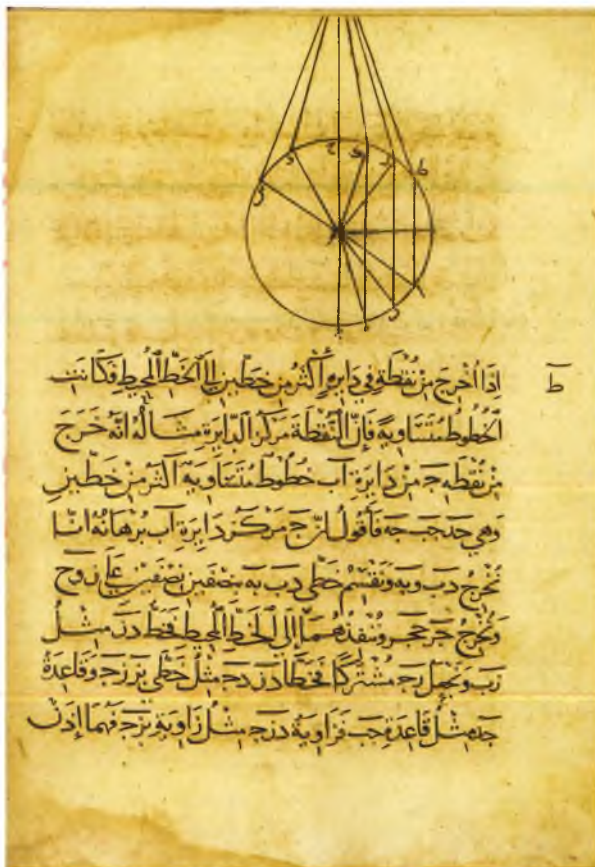 ط
اذا اخرج من نقطة في دايرة اكثر من خطين الى الخط المحيط فكانت
الخطوط متساوية فان النقطة مركز الدايرة مثاله انه خرج
من نقطه ج من دايرة اب خطوط متساوية اكثر من خطين
وهي جد جب جه فاقول ان ج مركز دايرة اب برهانه انا
نخرج دب وبه ونقسم خطي دب به بنصفين نصفين على زوح
ونخرج جز جح وننفذهما الى الخط المحيط فخط دز مثل
زب ونجعل زج مشتركا فخطا دز زج مثل خطي بز زج وقاعدة
جد مثل قاعدة جب فزاوية دزج مثل زاوية بزج فهما اذن